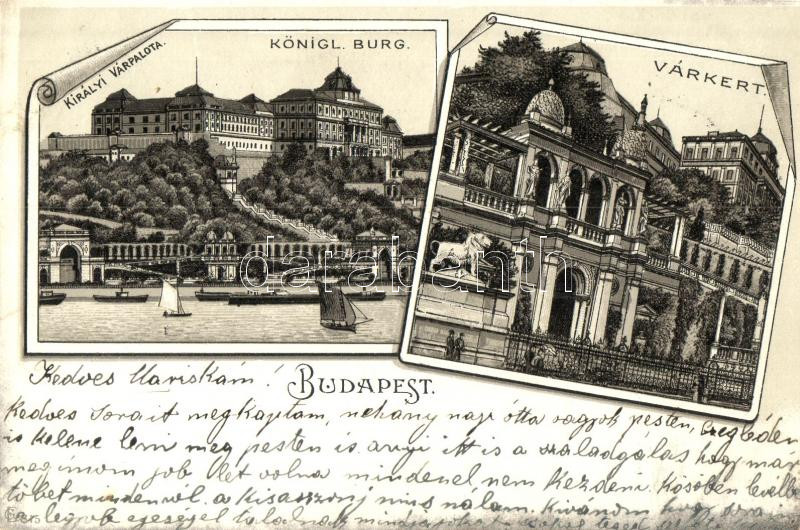 KIRÁLYI VÁRPALOTA.
KÖNIGL. BURG.
VÁRKERT.
darabanth
BUDAPEST.
Kedves Mariskám!
Kedves Sorait megkaptam, nehány napja ótta vagyok pesten, Czegléden
is kelene lenni meg pesten is anyi itt is a szaladgálas hogy már
meginom job let volna mindenel nem kezdeni. Kösöben levelbe
többet mindenről. a kisasszony nincs nálam. Kivánom hogy
a legjob egeségel talalnak